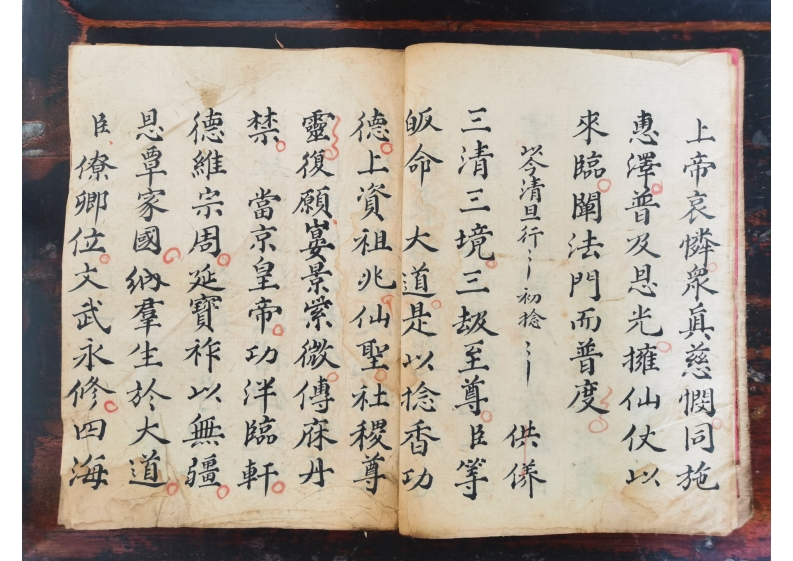 上帝哀憐衆眞慈憫同施
惠澤普及恩光擁仙仗以
來臨闡法門而普度
以今清旦行〻初捻〻 供養
三清三境三刼至尊臣等
皈命 大道是以捻香功
德上資祖兆仙聖社稷尊
靈復願宴景紫微傳庥丹
禁 當京皇帝功泮臨軒
德維宗周延寶祚以無疆
恩覃家國納羣生於大道
臣僚卿位文武永修四海